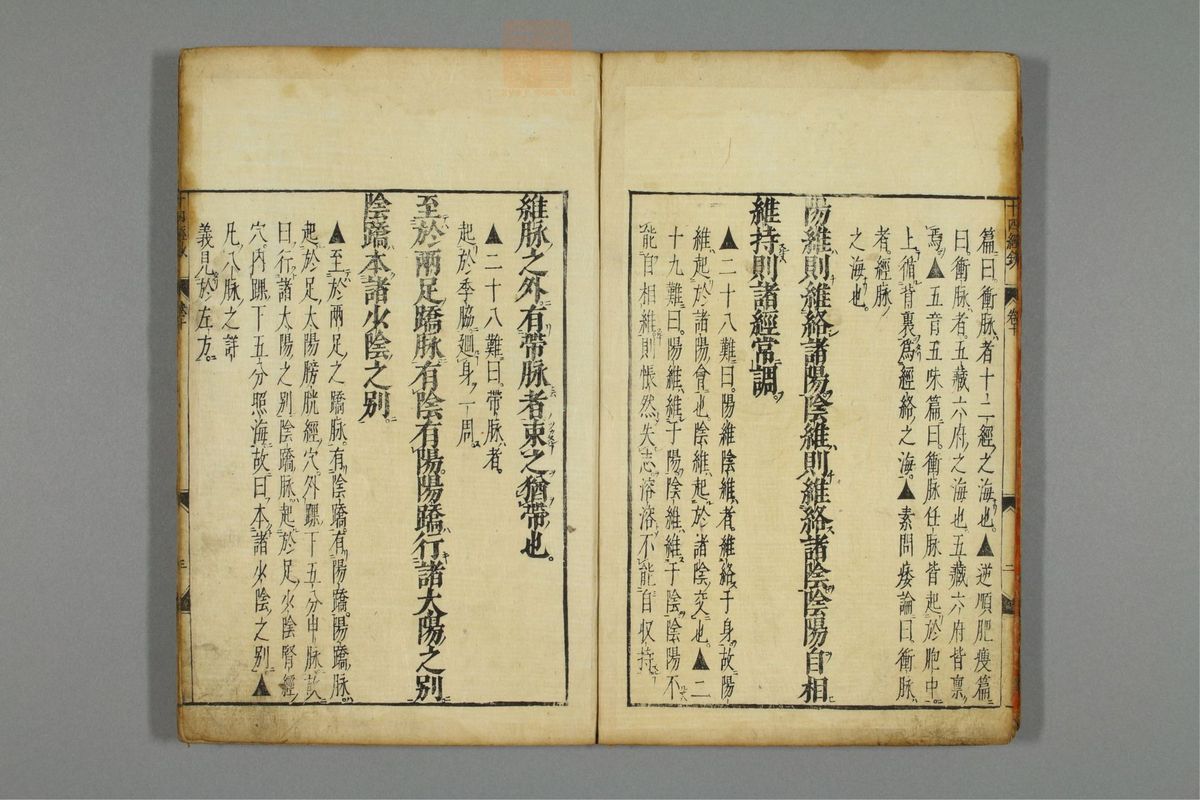 篇曰衝脉者十二經之海也▲逆順肥瘦篇
曰衝脉者五藏六府之海也五藏六府皆禀
焉▲五音五味篇曰衝脉任脉皆起於胞中
上循背裏爲經絡之海▲素問痿論曰衝脉
者經脉之海也
陽維則維絡諸陽陰維則維絡諸陰陰陽自相
維持則諸經常調
▲二十八難曰陽維陰維者維絡于身故陽
維起於諸陽會也陰維起於諸陰交也▲二
十九難曰陽維維于陽陰維維于陰陰陽不
能自相維則悵然失志溶溶不能自収持
維脉之外有帶脉者束之猶帶也
▲二十八難曰帶脉者
起於季脇廻身一周
至於兩足蹻脉有陰有陽陽蹻行諸太陽之別
陰蹻本諸少陰之別
▲至於兩足之蹻脉有陰蹻有陽蹻陽蹻脉
起於足太陽膀胱經穴外踝下五分申脉故
曰行諸太陽之別陰蹻脉起於足少陰腎經
穴内踝下五分照海故曰本諸少陰之別▲
凡八脉之詳
義見於左方
十四經
二
三